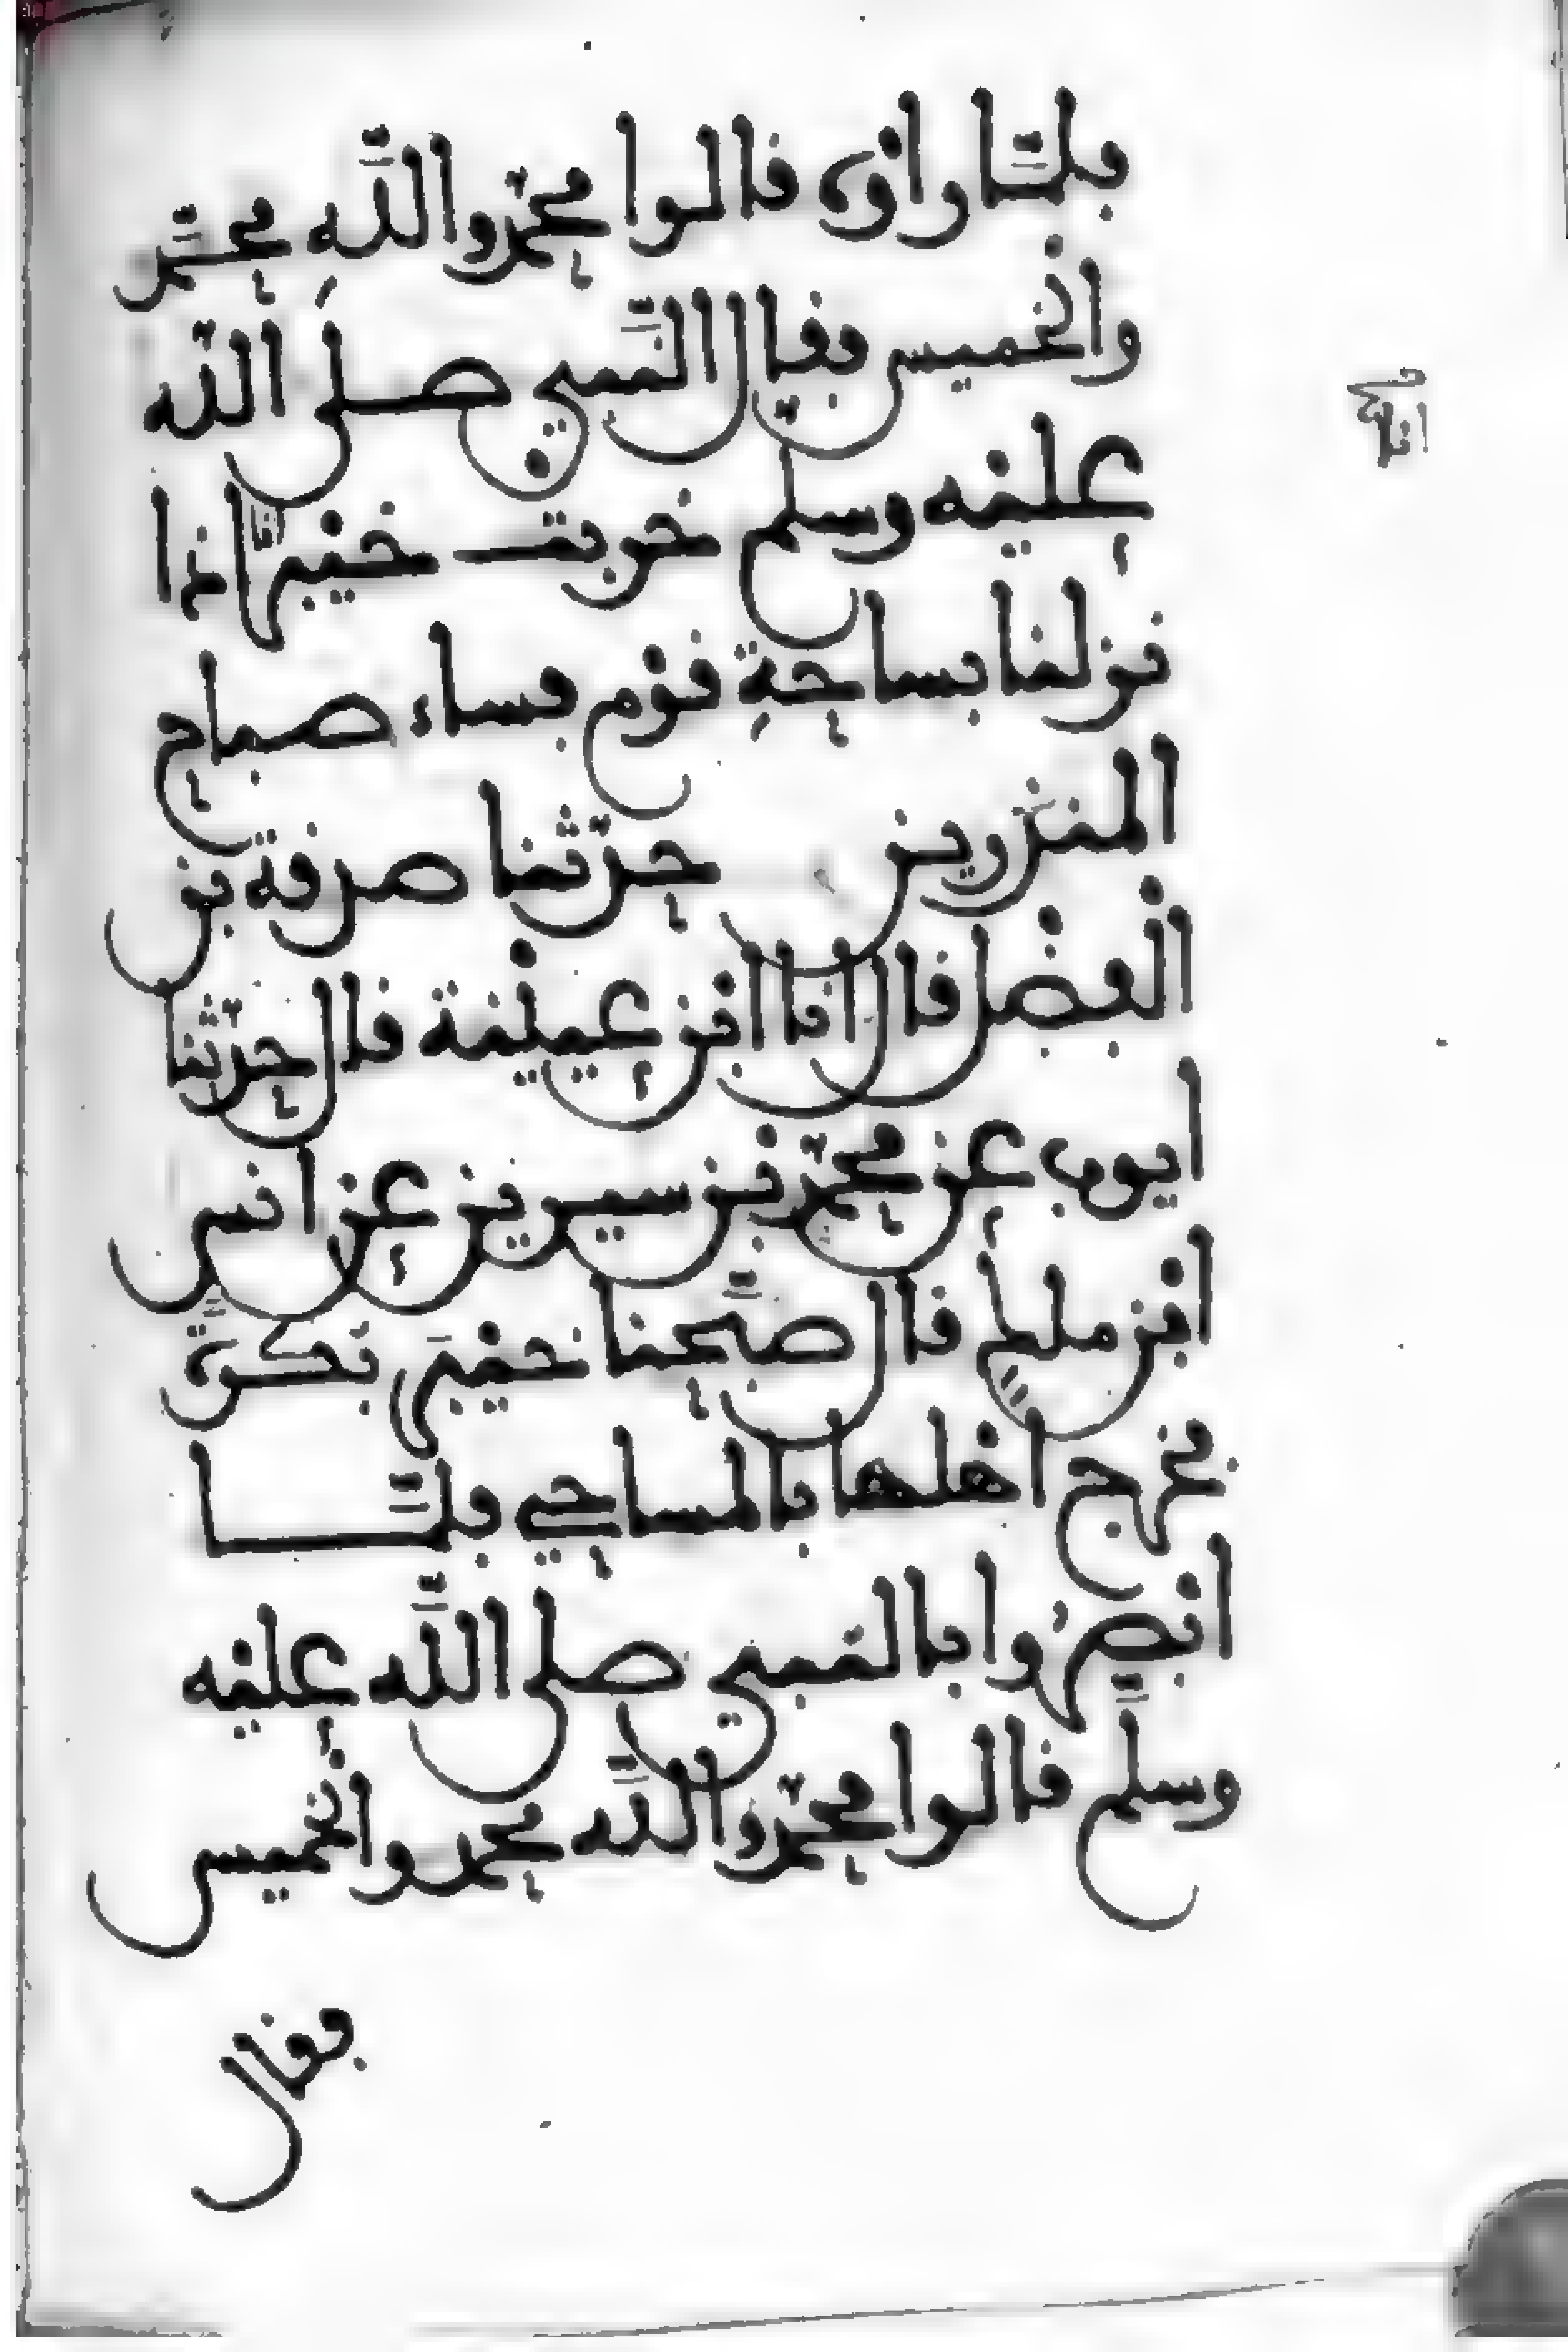 فلمّا راوه قالوا محمد والله محمّد
والخميس فقال النّبي صلى الله
عليه وسلم خربت خيبر انّا اذا
نزلنا بساحة قوم فساء صباح
المنذرين حدّثنا صدقة بن
الفضل قال انا ابن عيينة قال حدّثنا
ايوب عن محمّد بن سيرين عن انس
ابن ملك قال صبّحنا خيبر بكرة
فخرج اهلها بالمساحي فلمّا
ابصروا بالنبي صلى الله عليه
وسلّم قالوا محمّد والله محمد والخميس
فقال